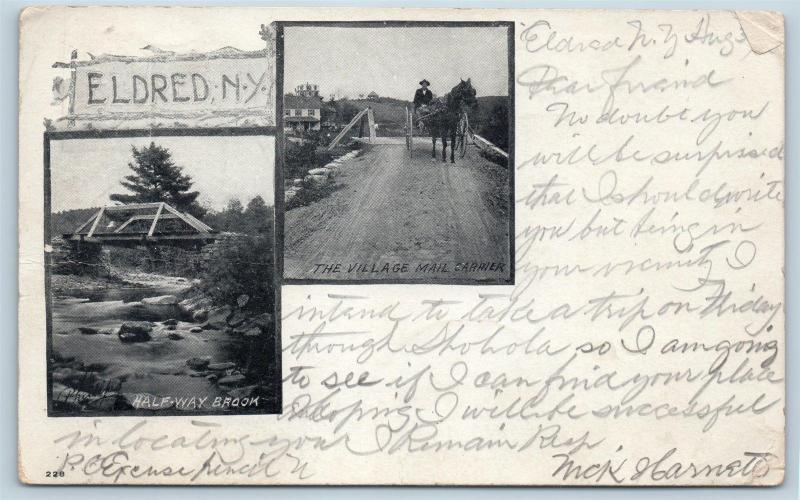 ELDRED, N.Y.
THE VILLAGE MAIL CARRIER
HALF-WAY BROOK
228
Eldred N.Y. Aug 3
Dear friend
No doubt you
will be surprised
that I should write
you but being in
your vicinity I
intend to take a trip on Friday
through Shohola so I am going
to see if I can find your place
Hoping I will be successful
in locating your I Remain Resp
Nick Harnett
P.C. Excuse pencil